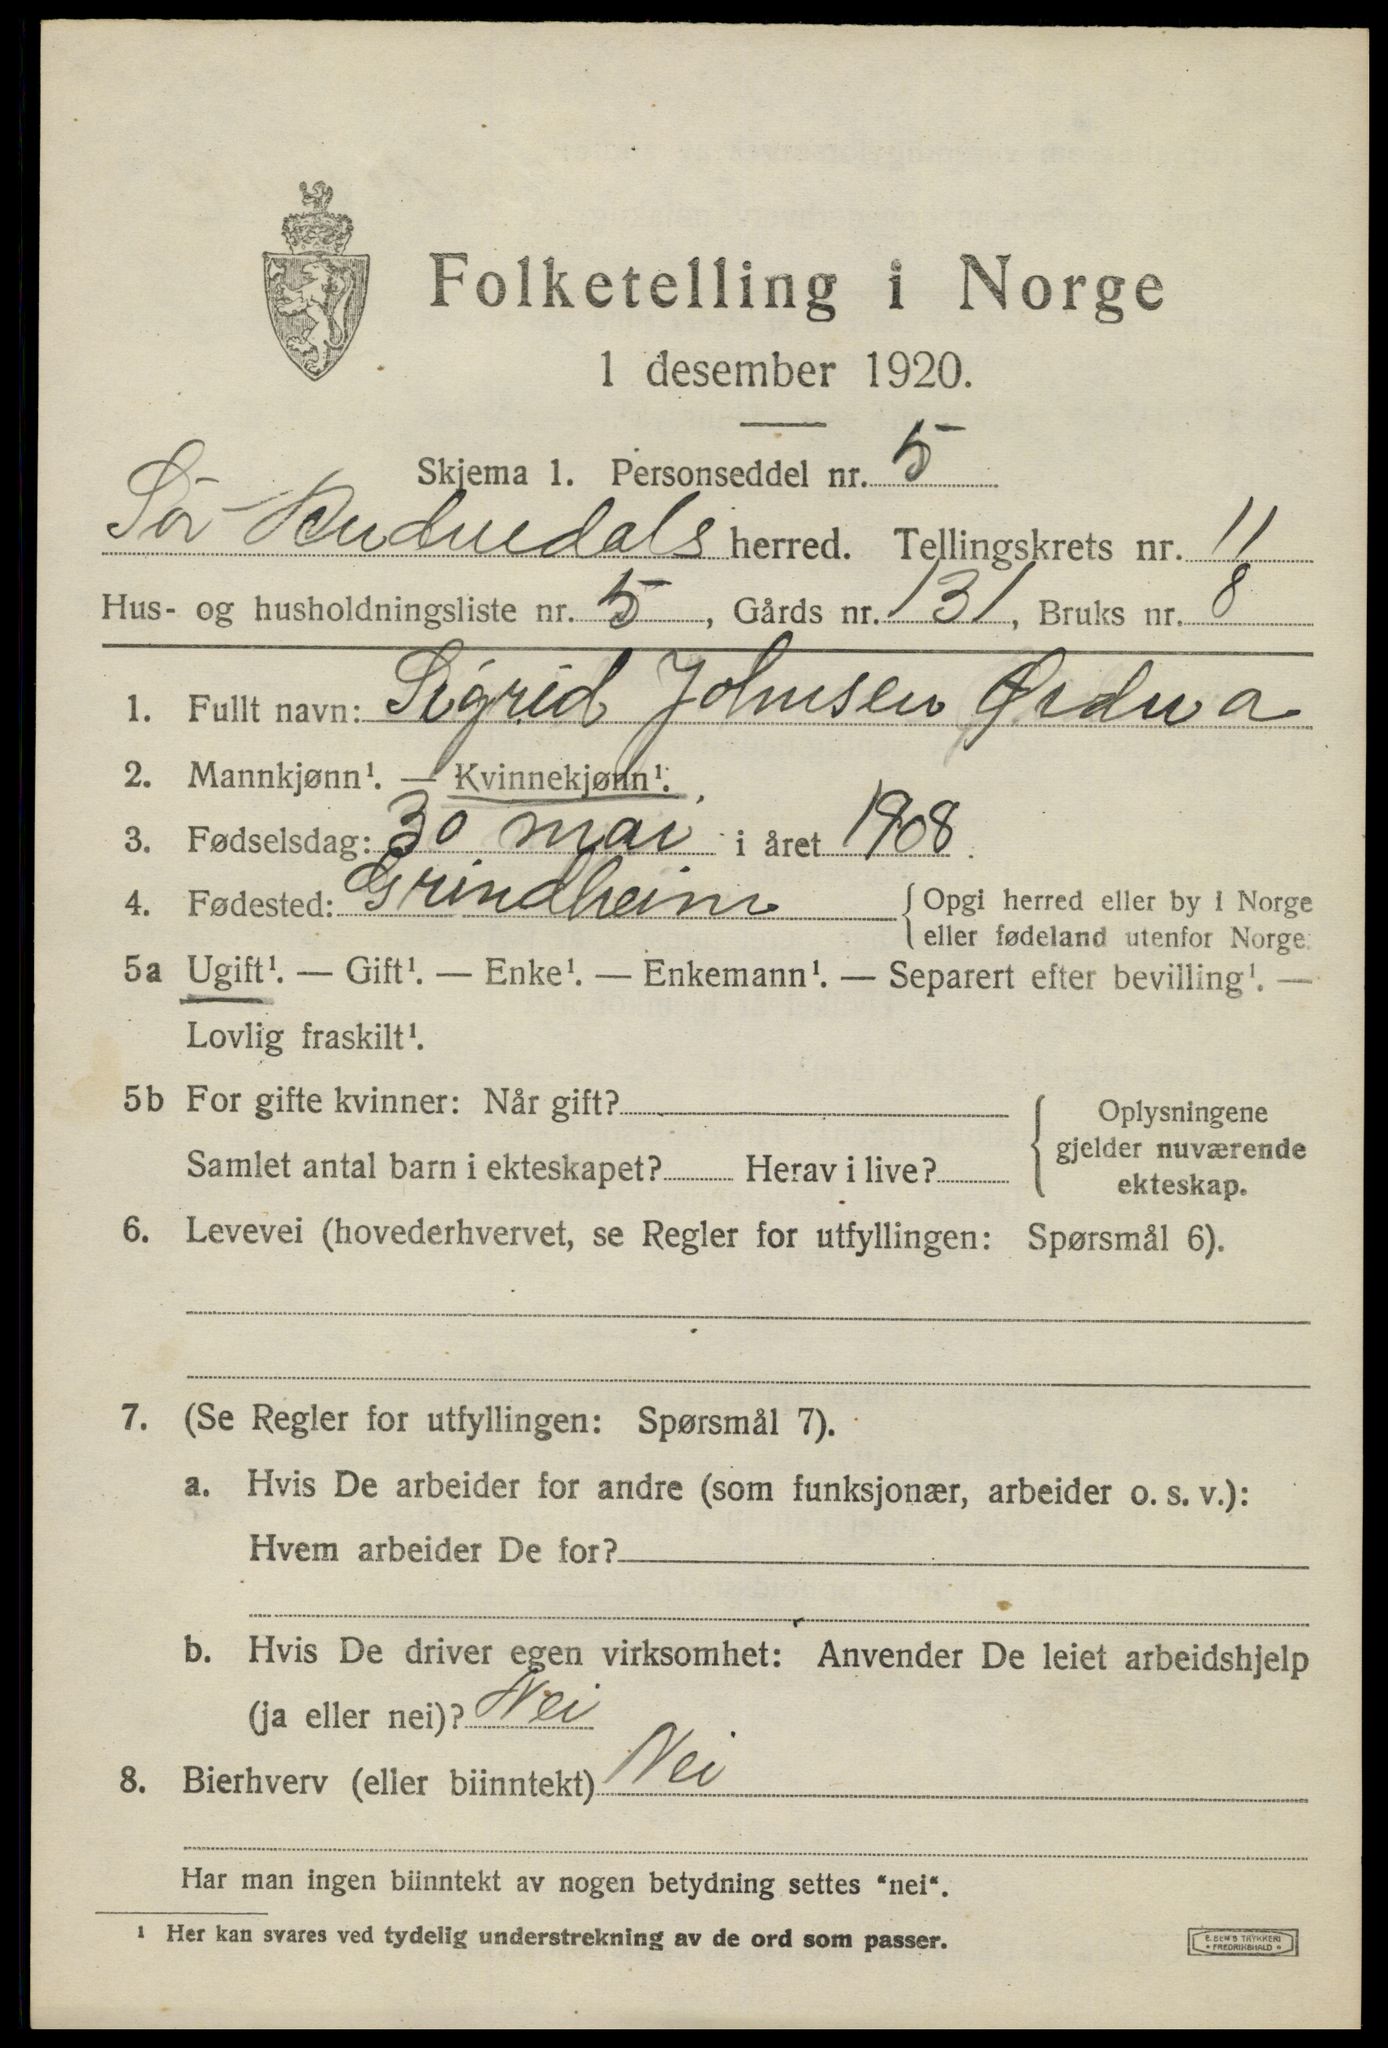 Folketelling i Norge
1 desember 1920.
Skjema 1. Personseddel nr. 5
Sör-Audnedals herred. Tellingskrets nr. 11
Hus- og husholdningsliste nr. 5, Gårds nr. 131, Bruks nr. 8
1. Fullt navn: Sigrid Johnsen
2. Mannkjønn¹. — Kvinnekjønn¹.
3. Fødselsdag: 30 mai i året 1908.
4. Fødested: Grindheim { Opgi herred eller by i Norge
eller fødeland utenfor Norge.
5a Ugift¹. — Gift¹. — Enke¹. — Enkemann¹. — Separert efter bevilling¹. —
Lovlig fraskilt¹.
5b For gifte kvinner: Når gift?
Samlet antal barn i ekteskapet? Herav i live?
Oplysningene
gjelder nuværende
ekteskap.
6. Levevei (hovederhvervet, se Regler for utfyllingen: Spørsmål 6).
7. (Se Regler for utfyllingen: Spørsmål 7).
a. Hvis De arbeider for andre (som funksjonær, arbeider o. s. v.):
Hvem arbeider De for?
b. Hvis De driver egen virksomhet: Anvender De leiet arbeidshjelp
(ja eller nei)? Nei
8. Bierhverv (eller biinntekt) Nei
Har man ingen biinntekt av nogen betydning settes "nei".
¹ Her kan svares ved tydelig understrekning av de ord som passer.
E. SEM'S TRYKKERI
* FREDRIKSHALD *